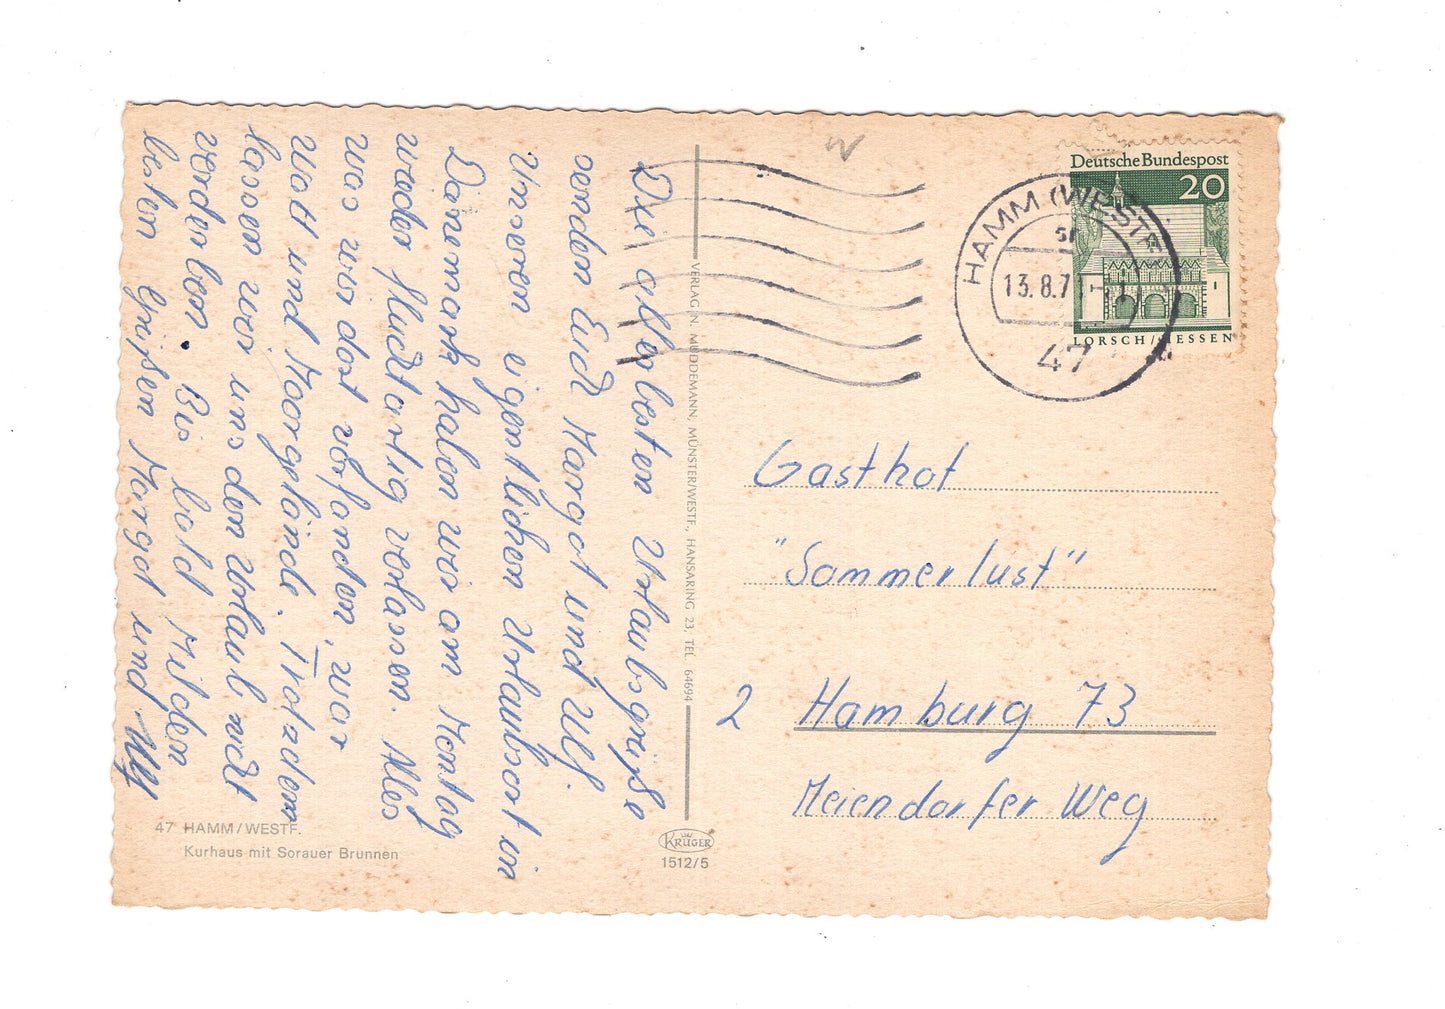 Die allerbesten Urlaubsgrüße
senden Euch Margot und Ulf.
Unseren eigentlichen Urlaubsort in
Dänemark haben wir am Montag
wieder fluchtartig verlassen. Alles
was wir dort vorfanden, war
Watt und Moorgelände. Trotzdem
lassen wir uns den Urlaub nicht
verderben. Bis bald
besten Grüßen Margot und Ulf
Deutsche Bundespost
20
LORSCH/HESSEN
HAMM (WESTF
13.8.7
47
VERLAG N. MÜDDEMANN, MÜNSTER/WESTF., HANSARING 23, TEL. 64694
Gasthof
"Sommerlust"
2 Hamburg 73
Meiendorfer Weg
47 HAMM/WESTF.
Kurhaus mit Sorauer Brunnen
KRÜGER
1512/5